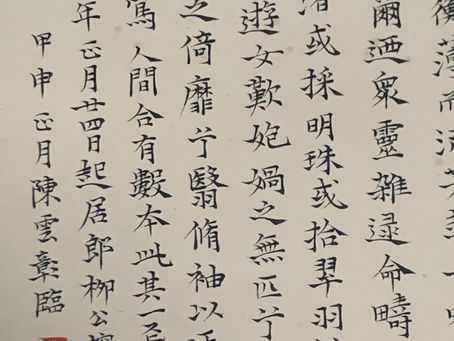 衡薄而流芳
爾迺眾靈雜遝命疇
渚或採明珠或拾翠羽
遊女歎媧之無匹兮
之倚靡兮翳脩袖以
寫人間合有數本此其一
年正月廿四日起居郎柳公
甲申正月陳雲彰臨